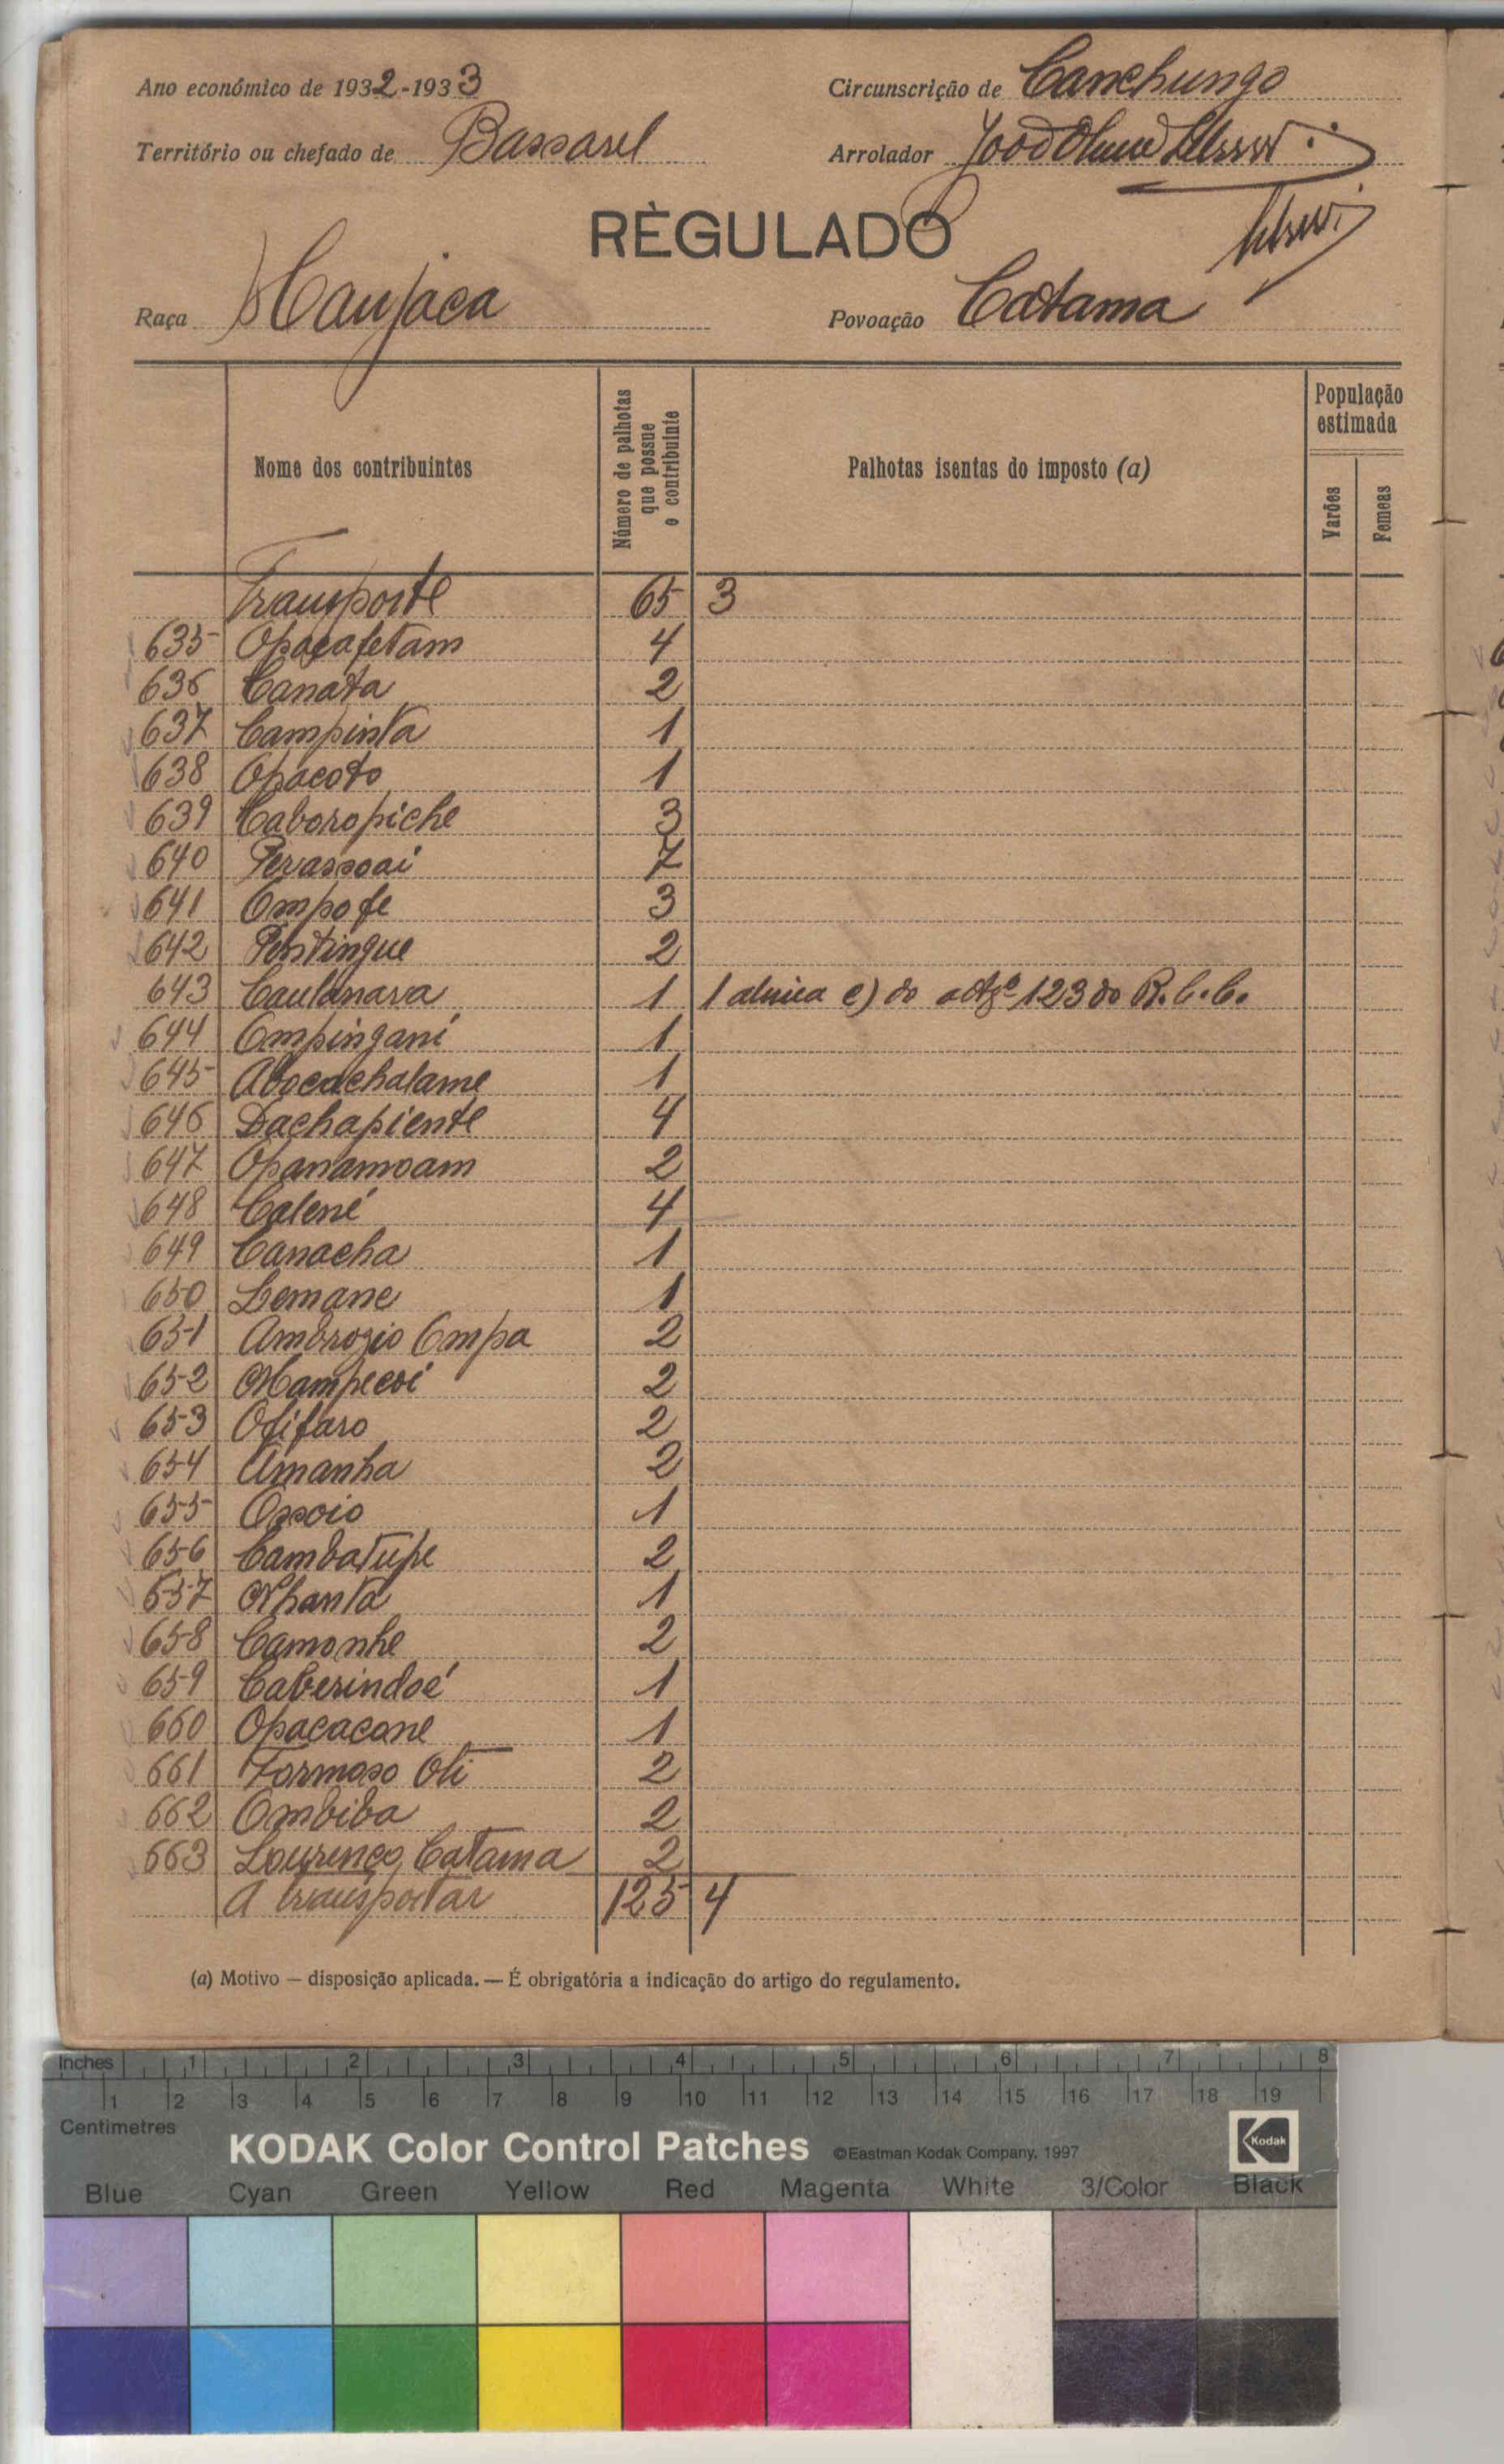 Ano económico de 1932-1933
Circunscrição de Canchungo
Território ou chefado de Bassarel
Arrolador
RÈGULADO
Raça Manjaca
Povoação Catama
Nome dos contribuintes
Número de palhotas que possue o contribuinte
Palhotas isentas do imposto (a)
População estimada
Varões
Femeas
Transporte 65 3
635 Opacafetam 4
636 Canata 2
637 Campinta 1
638 Opacoto 1
639 Caboropiche 3
640 Perassoai 7
641 Ompofe 3
642 Pentingue 2
643 Caulanara 1 1 alinea e) do artgº 123 do R.C.C.
644 Ompingani 1
645 Abocachalame 1
646 Dachapiente 4
647 Opanamoam 2
648 Calené 4
649 Canacha 1
650 Lemane 1
651 Ambrozio Ompa 2
652 Mampecoi 2
653 Ofifaro 2
654 Umanha 2
655 Ossoio 1
656 Cambatupe 2
657 Nhanta 1
658 Camonhe 2
659 Caberindoé 1
660 Opacacane 1
661 Formoso Oti 2
662 Ombiba 2
663 Lourenço Catama 2
A transportar 125 4
(a) Motivo — disposição aplicada. — É obrigatória a indicação do artigo do regulamento.
Inches 1 2 3 4 5 6 7 8
1 2 3 4 5 6 7 8 9 10 11 12 13 14 15 16 17 18 19
Centimetres
KODAK Color Control Patches ©Eastman Kodak Company, 1997 Kodak
Blue Cyan Green Yellow Red Magenta White 3/Color Black